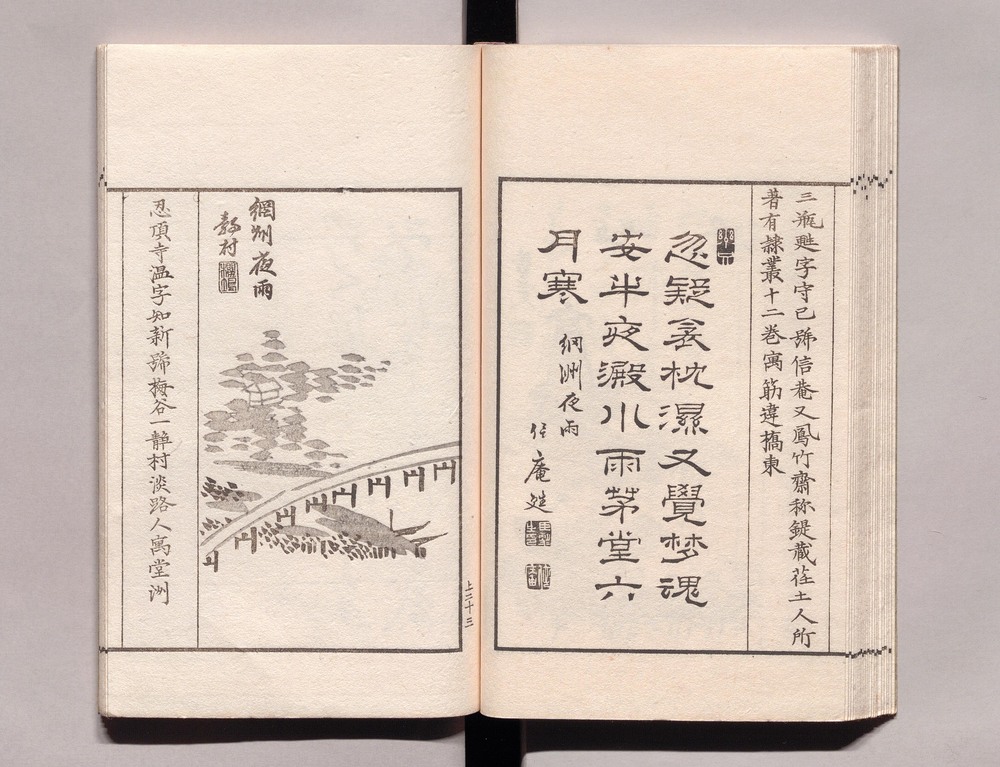 三瓶甦字守己號信菴又鳳竹齋称鍉藏荏土人所
著有隷叢十二巻寓筋違橋東
忽疑衾枕濕又覺梦魂
安半夜澱小雨茅堂六
月寒
網洲夜雨
信庵甦
上二十三
網洲夜雨
静村
忍頂寺温字知新號梅谷一静村淡路人寓堂洲